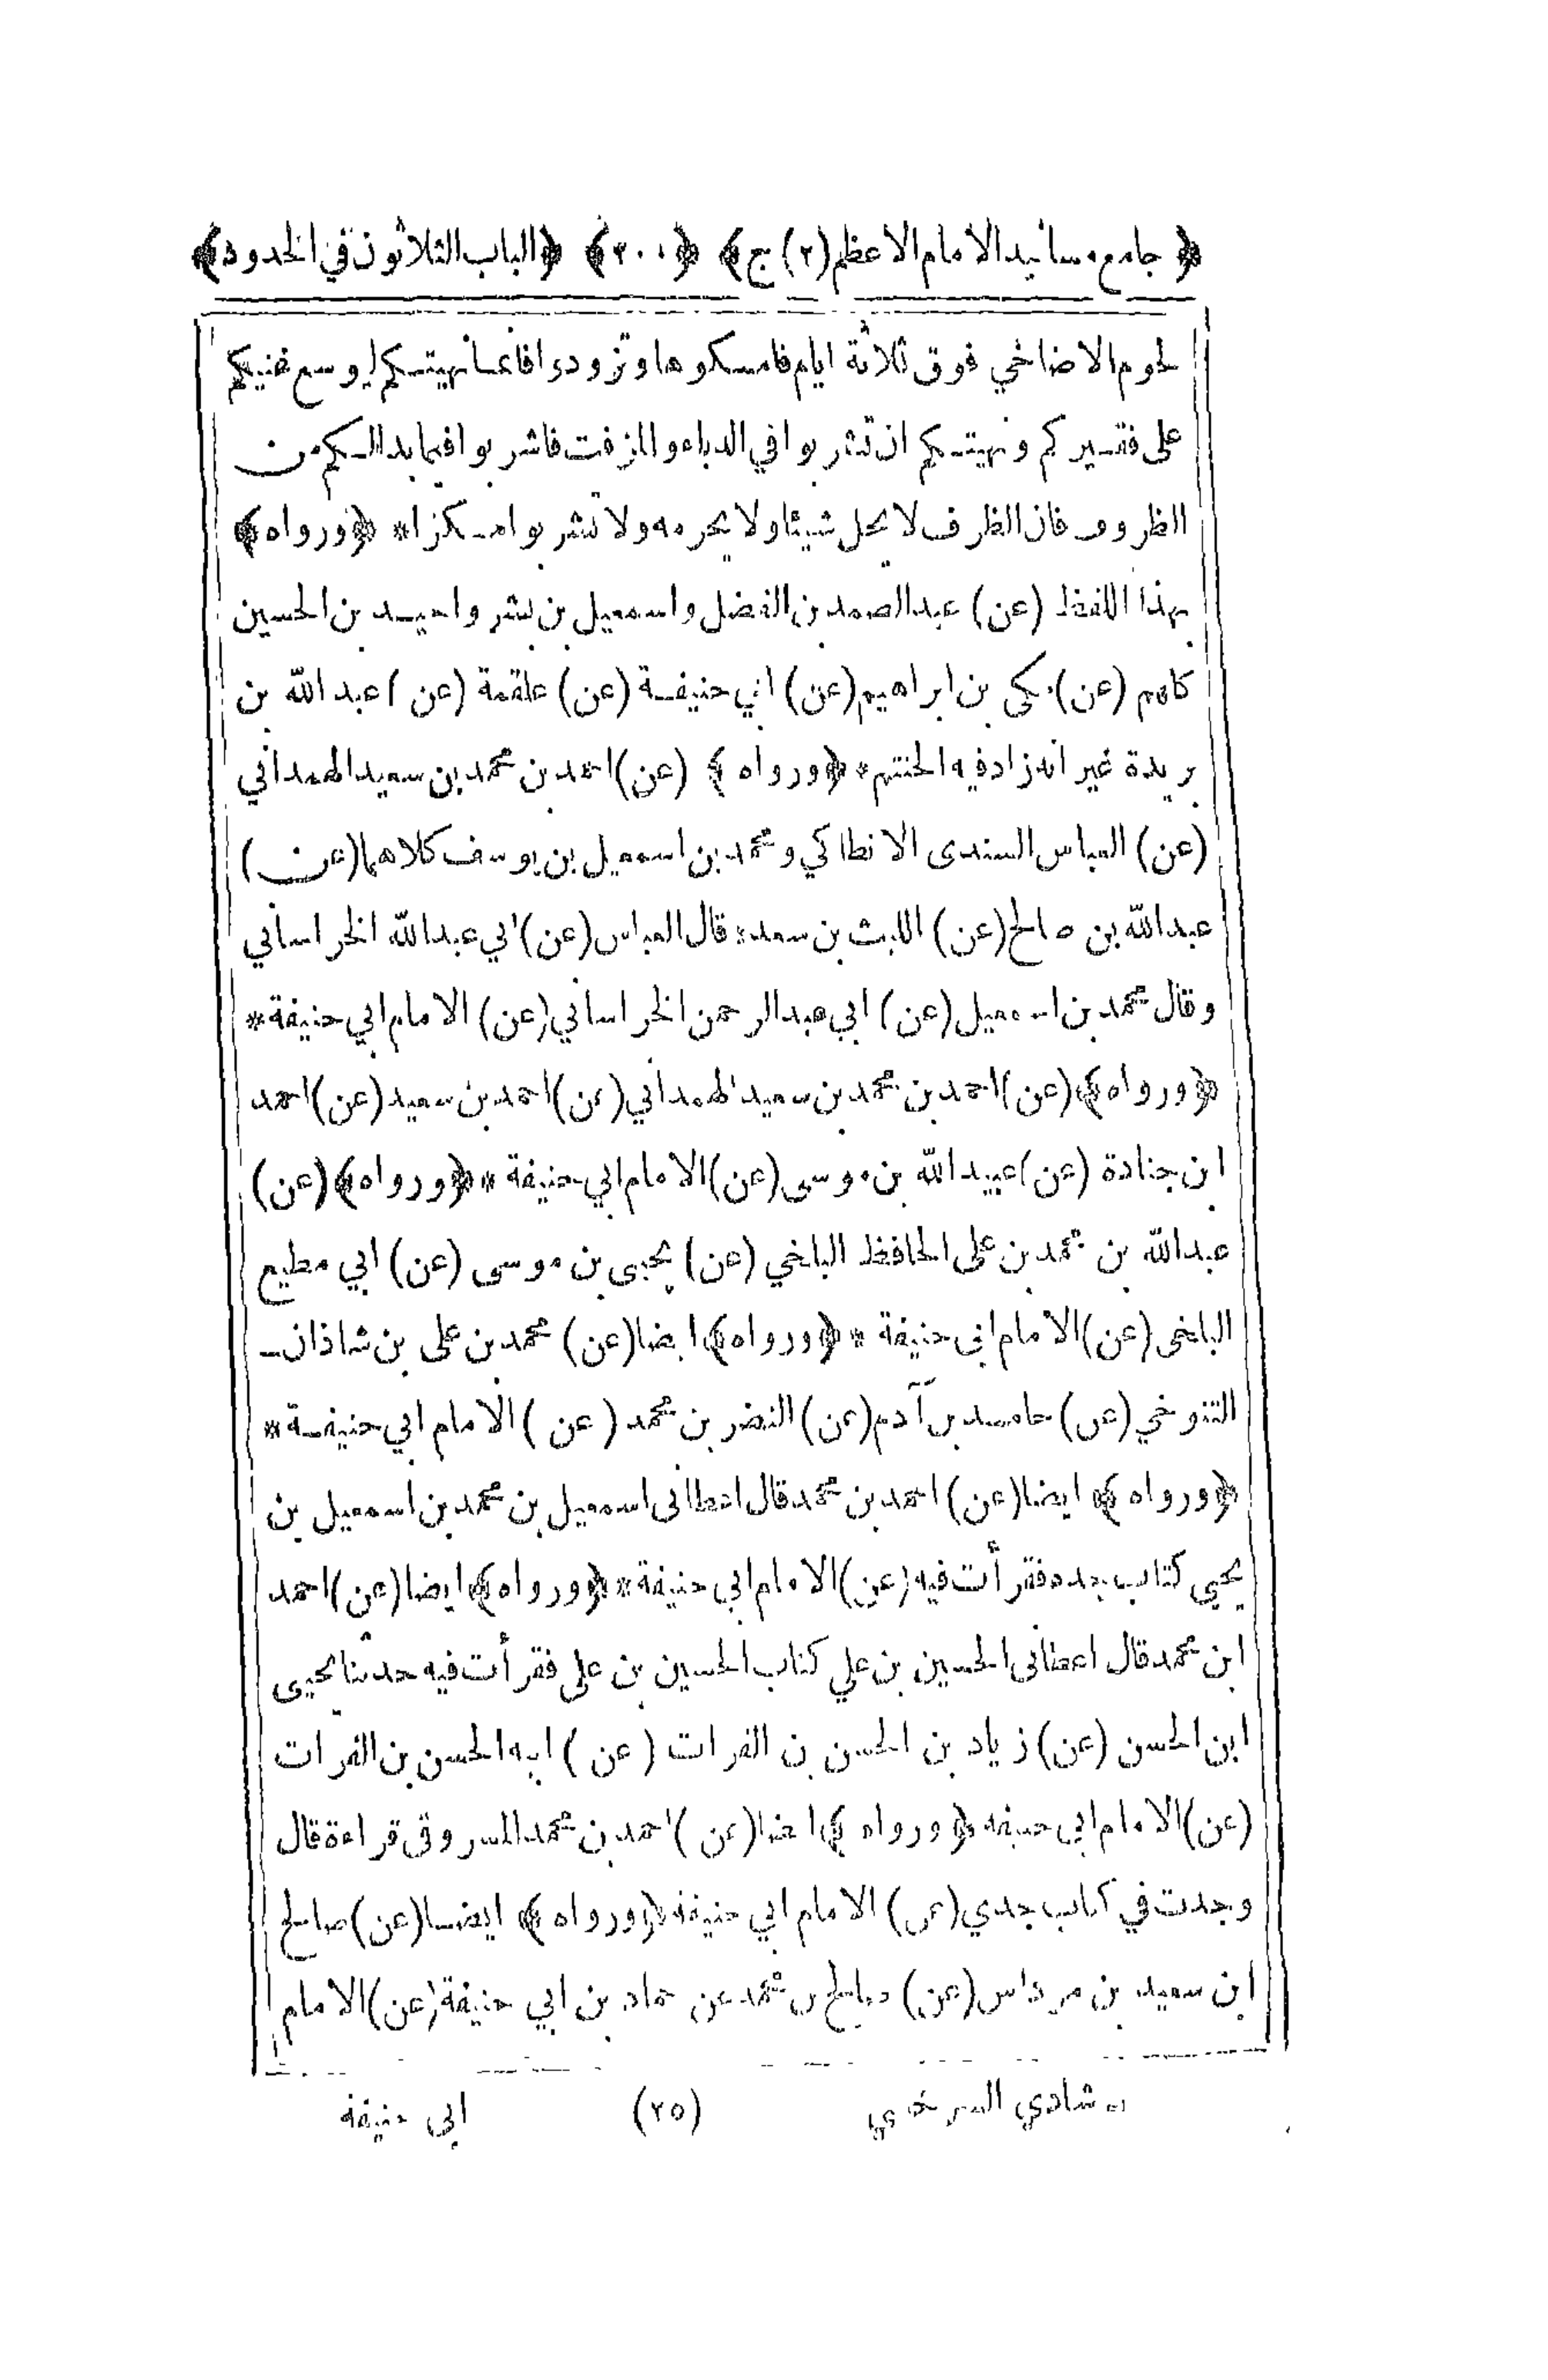 ﴿ جامع مسانيد الامام الاعظم (٢) ج﴾ ﴿٢٠٠﴾ ﴿الباب الثلاثون في الحدود﴾
لحوم الاضاحي فوق ثلاثة ايام فامسكوها وتزودوا فانما نهيتكم ليوسع غنيكم
على فقيركم ونهيتكم ان تشربوا في الدباء والمزفت فاشربوا فيما بدالكم من
الظروف فان الظرف لا يحل شيئا ولا يحرمه ولا تشربوا مسكرا * ﴿ورواه﴾
بهذا اللفظ (عن) عبد الصمد بن الفضل واسمعيل بن بشر واحيد بن الحسين
كلهم (عن) مكي بن ابراهيم (عن) ابي حنيفة (عن) علقمة (عن) عبد الله بن
بريدة غير انه زاد فيه الحنتم * ﴿ورواه﴾ (عن) احمد بن محمد بن سعيد الهمداني
(عن) العباس السندى الانطاكي ومحمد بن اسمعيل بن يوسف كلاهما (عن)
عبد الله بن صالح (عن) الليث بن سعد * قال العباس (عن) ابي عبد الله الخراساني
وقال محمد بن اسمعيل (عن) ابي عبد الرحمن الخراساني (عن) الامام ابي حنيفة *
﴿ورواه﴾ (عن) احمد بن محمد بن سعيد الهمداني (عن) احمد بن سعيد (عن) احمد
ابن جنادة (عن) عبيد الله بن موسى (عن) الامام ابي حنيفة * ﴿ورواه﴾ (عن)
عبد الله بن محمد بن على الحافظ البلخي (عن) يحيى بن موسى (عن) ابي مطيع
البلخى (عن) الامام ابي حنيفة * ﴿ورواه﴾ ايضا (عن) محمد بن على بن شاذان
التنوخي (عن) حامد بن آدم (عن) النضر بن محمد (عن) الامام ابي حنيفة *
﴿ورواه﴾ ايضا (عن) احمد بن محمد قال اعطانى اسمعيل بن محمد بن اسمعيل بن
يحيى كتاب جده فقرأت فيه (عن) الامام ابي حنيفة * ﴿ورواه﴾ ايضا (عن) احمد
ابن محمد قال اعطانى الحسين بن علي كتاب الحسين بن على فقرأت فيه حدثنا يحيى
ابن الحسن (عن) زياد بن الحسن بن الفرات (عن) ابيه الحسن بن الفرات
(عن) الامام ابي حنيفة ﴿ورواه﴾ ايضا (عن) احمد بن محمد المسروقى قراءة قال
وجدت في كتاب جدي (عن) الامام ابي حنيفة ﴿ورواه﴾ ايضا (عن) صالح
ابن سعيد بن مرداس (عن) صالح بن محمد عن حماد بن ابي حنيفة (عن) الامام
(٢٥) ابى حنيفة